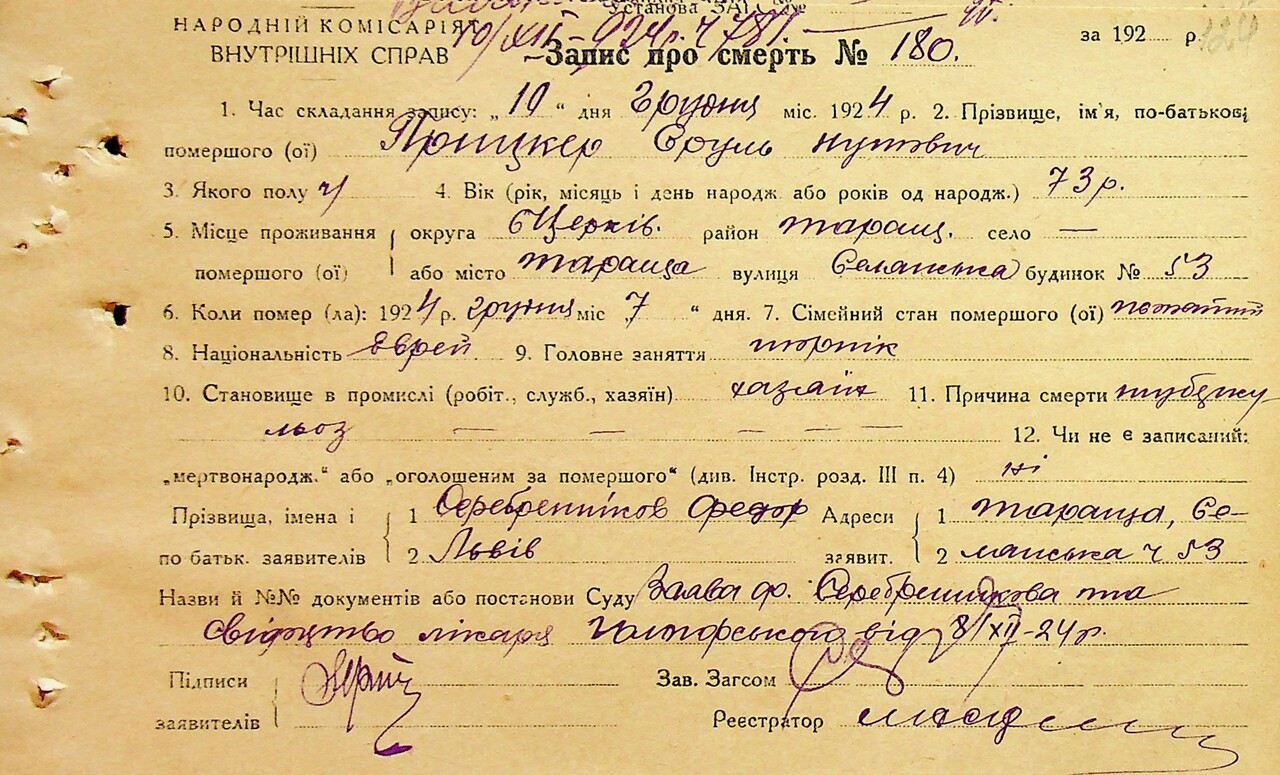 Установа ЗАГС №
НАРОДНІЙ КОМІСАРІЯТ
10/XII-924р. ч 781.
за 192 р.
ВНУТРІШНІХ СПРАВ
Запис про смерть № 180.
1. Час складання запису: „10" дня Грудня міс. 1924 р. 2. Прізвище, ім'я, по-батькові
помершого (ої) Прицкер Сруль Нутович
3. Якого полу ч 4. Вік (рік, місяць і день народж. або років од народж.) 73 р.
5. Місце проживання округа бЦерків. район Таращ. село —
помершого (ої) або місто Тараща вулиця Селянська будинок № 53
6. Коли помер (ла): 1924 р. грудня міс „7 " дня. 7. Сімейний стан помершого (ої)
8. Національність Єврей 9. Головне заняття
10. Становище в промислі (робіт., служб., хазяїн) хазяїн 11. Причина смерти туберку
льоз — — — — —
12. Чи не є записаний:
„мертвонародж." або „оголошеним за помершого" (див. Інстр. розд. III п. 4) ні
Прізвища, імена і 1 Серебренніков Федор Адреси 1 Тараща, Се-
по батьк. заявителів 2 Львів заявит. 2 лянська ч 53
Назви й №№ документів або постанови Суду Заява гр. Серебреннікова та
свідоцтво лікаря від 8/XII-24 р.
Підписи Зав. Загсом
заявителів Реєстратор